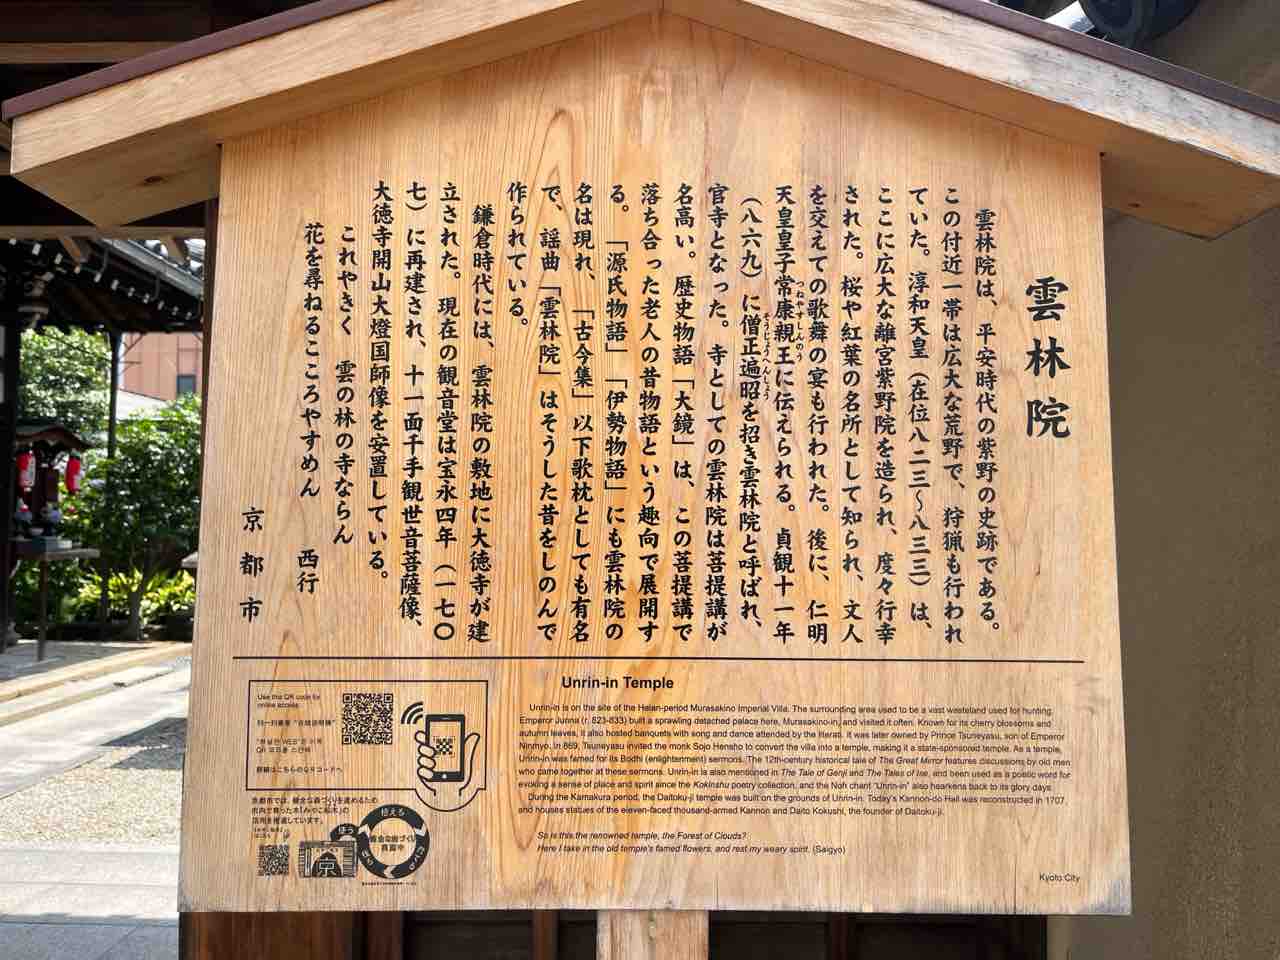 雲林院
雲林院は、平安時代の紫野の史跡である。
この付近一帯は広大な荒野で、狩猟も行われ
ていた。淳和天皇（在位八二三〜八三三）は、
ここに広大な離宮紫野院を造られ、度々行幸
された。桜や紅葉の名所として知られ、文人
を交えての歌舞の宴も行われた。後に、仁明
天皇皇子常康親王に伝えられる。貞観十一年
つねやすしんのう
（八六九）に僧正遍昭を招き雲林院と呼ばれ、
そうじょうへんしょう
官寺となった。寺としての雲林院は菩提講が
名高い。歴史物語「大鏡」は、この菩提講で
落ち合った老人の昔物語という趣向で展開す
る。「源氏物語」「伊勢物語」にも雲林院の
名は現れ、「古今集」以下歌枕としても有名
で、謡曲「雲林院」はそうした昔をしのんで
作られている。
鎌倉時代には、雲林院の敷地に大徳寺が建
立された。現在の観音堂は宝永四年（一七〇
七）に再建され、十一面千手観世音菩薩像、
大徳寺開山大燈国師像を安置している。
これやきく　雲の林の寺ならん
花を尋ねるこころやすめん　西行
京都市
Unrin-in Temple
Unrin-in is on the site of the Heian-period Murasakino Imperial Villa. The surrounding area used to be a vast wasteland used for hunting.
Emperor Junna (r. 823-833) built a sprawling detached palace here, Murasakino-in, and visited it often. Known for its cherry blossoms and
autumn leaves, it also hosted banquets with song and dance attended by the literati. It was later owned by Prince Tsuneyasu, son of Emperor
Ninmyo. In 869, Tsuneyasu invited the monk Sojo Hensho to convert the villa into a temple, making it a state-sponsored temple. As a temple,
Unrin-in was famed for its Bodhi (enlightenment) sermons. The 12th-century historical tale of The Great Mirror features discussions by old men
who came together at these sermons. Unrin-in is also mentioned in The Tale of Genji and The Tales of Ise, and been used as a poetic word for
evoking a sense of place and spirit since the Kokinshu poetry collection, and the Noh chant "Unrin-in" also hearkens back to its glory days.
During the Kamakura period, the Daitoku-ji temple was built on the grounds of Unrin-in. Today's Kannon-do Hall was reconstructed in 1707
and houses statues of the eleven-faced thousand-armed Kannon and Daito Kokushi, the founder of Daitoku-ji.
So is this the renowned temple, the Forest of Clouds?
Here I take in the old temple's famed flowers, and rest my weary spirit. (Saigyo)
Kyoto City
Use this QR code for
online access.
詳細はこちらのQRコードへ
京都市では、健全な森づくりを進めるため
市内産の木「みやこ杣木」の
活用を推進しています。
京